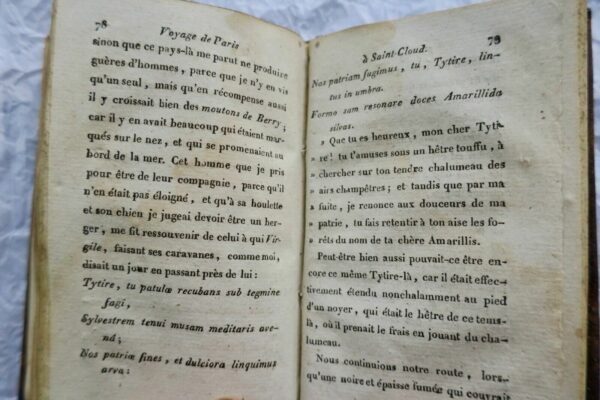 78
Voyage de Paris
sinon que ce pays-là me parut ne produire
guères d'hommes, parce que je n'y en vis
qu'un seul, mais qu'en récompense aussi
il y croissait bien des moutons de Berry;
car il y en avait beaucoup qui étaient mar-
qués sur le nez, et qui se promenaient au
bord de la mer. Cet homme que je pris
pour être de leur compagnie, parce qu'il
n'en était pas éloigné, et qu'à sa houlette
et son chien je jugeai devoir être un ber-
ger, me fit ressouvenir de celui à qui Vir-
gile, faisant ses caravanes, comme moi,
disait un jour en passant près de lui:
Tytire, tu patulæ recubans sub tegmine
fagi,
Sylvestrem tenui musam meditaris ave-
nd;
Nos patriæ fines, et dulciora linquimus
arva:
à Saint-Cloud.
79
Nos patriam fugimus, tu, Tytire, lin-
tus in umbra.
Formo sam resonare doces Amarillida
sileas.
» Que tu es heureux, mon cher Tyti-
» re! tu t'amuses sous un hêtre touffu, à
» chercher sur ton tendre chalumeau des
» airs champêtres; et tandis que par ma
» fuite, je renonce aux douceurs de ma
» patrie, tu fais retentir à ton aise les fo-
» rêts du nom de ta chère Amarillis.
Peut-être bien aussi pouvait-ce être en-
core ce même Tytire-là, car il était effec-
tivement étendu nonchalamment au pied
d'un noyer, qui était le hêtre de ce tems-
là, où il prenait le frais en jouant du cha-
lumeau.
Nous continuions notre route, lors-
qu'une noire et épaisse fumée qui couvrait